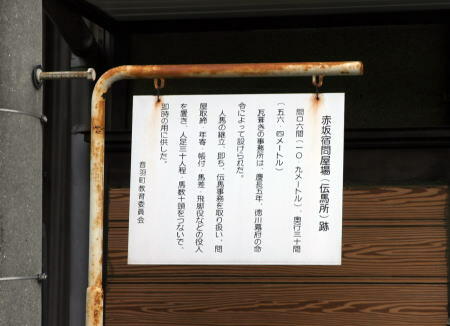 赤坂宿問屋場（伝馬所）跡
間口六間（一〇・九メートル）、奥行三十間
（五六・四メートル）
瓦葺きの事務所は、慶長五年、徳川幕府の命
令によって設けられた。
人馬の継立、即ち、伝馬事務を取り扱い、問
屋取締、年寄、帳付、馬差・飛脚役などの役人
を置き、人足三十人程・馬数十頭をつないで、
即時の用に供した。
音羽町教育委員会